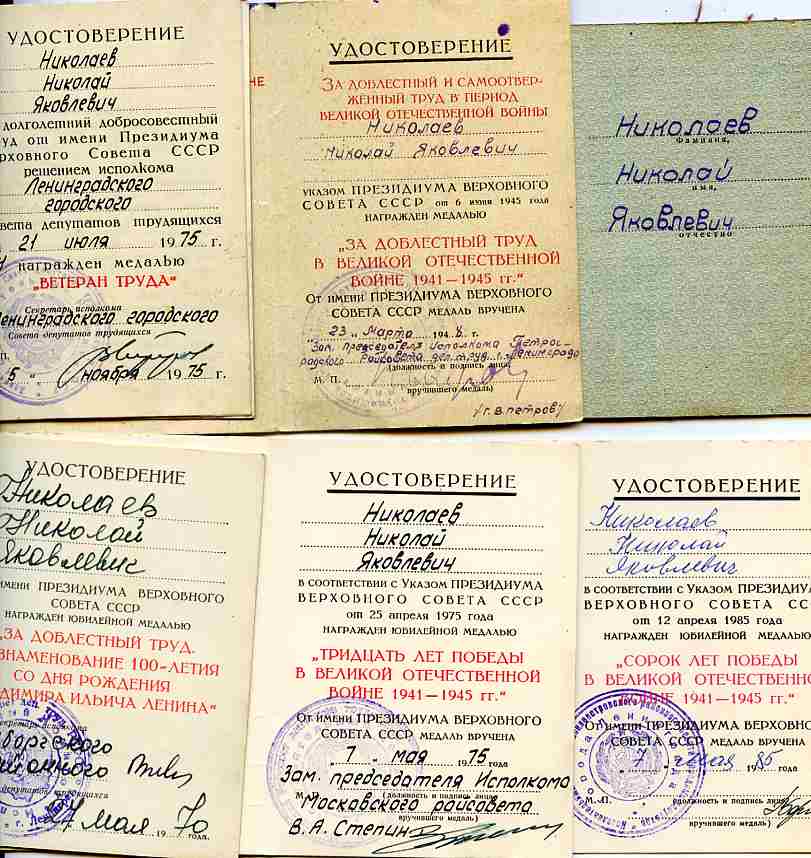 УДОСТОВЕРЕНИЕ
Николаев
Николай
Яковлевич
долголетний добросовестный
уд от имени Президиума
ерховного Совета СССР
решением исполкома
Ленинградского
городского
вета депутатов трудящихся
21 июля 1975 г.
награжден медалью
„ВЕТЕРАН ТРУДА“
Секретарь исполкома
Ленинградского городского
Совета депутатов трудящихся
П.
5 " ноября 1975 г.
УДОСТОВЕРЕНИЕ
ЗА ДОБЛЕСТНЫЙ И САМООТВЕР-
ЖЕННЫЙ ТРУД В ПЕРИОД
ВЕЛИКОЙ ОТЕЧЕСТВЕННОЙ ВОЙНЫ
Николаев
Николай Яковлевич
УКАЗОМ ПРЕЗИДИУМА ВЕРХОВНОГО
СОВЕТА СССР от 6 июня 1945 года
НАГРАЖДЕН МЕДАЛЬЮ
„ЗА ДОБЛЕСТНЫЙ ТРУД
В ВЕЛИКОЙ ОТЕЧЕСТВЕННОЙ
ВОЙНЕ 1941—1945 гг.“
От имени ПРЕЗИДИУМА ВЕРХОВНОГО
СОВЕТА СССР МЕДАЛЬ ВРУЧЕНА
23 „ Марта 1946 г.
Зам. председателя исполкома Петрог-
радского Райсовета деп. труд. г. Ленинграда
(должность и подпись лица,
М. П.
вручившего медаль)
/г. В. Петров/
НЕ
Николаев
Фамилия,
Николай
имя,
Яковлевич
отчество
УДОСТОВЕРЕНИЕ
Николаев
Николай
Яковлевич
имени ПРЕЗИДИУМА ВЕРХОВНОГО
СОВЕТА СССР
НАГРАЖДЕН ЮБИЛЕЙНОЙ МЕДАЛЬЮ
„ЗА ДОБЛЕСТНЫЙ ТРУД.
ЗНАМЕНОВАНИЕ 100-ЛЕТИЯ
СО ДНЯ РОЖДЕНИЯ
ДИМИРА ИЛЬИЧА ЛЕНИНА“
боргского
районного
депутатов трудящихся
мая 1970 года.
УДОСТОВЕРЕНИЕ
Николаев
Николай
Яковлевич
В СООТВЕТСТВИИ С УКАЗОМ ПРЕЗИДИУМА
ВЕРХОВНОГО СОВЕТА СССР
от 25 апреля 1975 года
НАГРАЖДЕН ЮБИЛЕЙНОЙ МЕДАЛЬЮ
„ТРИДЦАТЬ ЛЕТ ПОБЕДЫ
В ВЕЛИКОЙ ОТЕЧЕСТВЕННОЙ
ВОЙНЕ 1941—1945 гг.“
От имени ПРЕЗИДИУМА ВЕРХОВНОГО
СОВЕТА СССР МЕДАЛЬ ВРУЧЕНА
„7 „ мая 1975 года
Зам. председателя Исполкома
М. П. (должность и подпись лица,
Московского райсовета
вручившего медаль)
В. А. Степин
УДОСТОВЕРЕНИЕ
Николаев
Николай
Яковлевич
В СООТВЕТСТВИИ С УКАЗОМ ПРЕЗИДИУ
ВЕРХОВНОГО СОВЕТА СС
от 12 апреля 1985 года
НАГРАЖДЕН ЮБИЛЕЙНОЙ МЕДАЛЬЮ
„СОРОК ЛЕТ ПОБЕДЫ
В ВЕЛИКОЙ ОТЕЧЕСТВЕННО
ВОЙНЕ 1941—1945 гг.“
От имени ПРЕЗИДИУМА ВЕРХОВНО
СОВЕТА СССР МЕДАЛЬ ВРУЧЕНА
7 „ мая 1985 года
М. П. (должность и подпись лица
вручившего медаль)